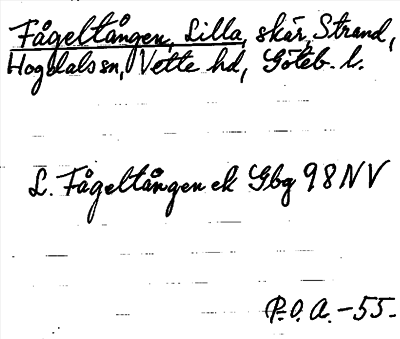 Fågeltången, Lilla, skär, Strand,
Hogdals sn, Vette hd, Göteb. l.
L. Fågeltången ek Gbg 98 NV
P.O.A. -55.